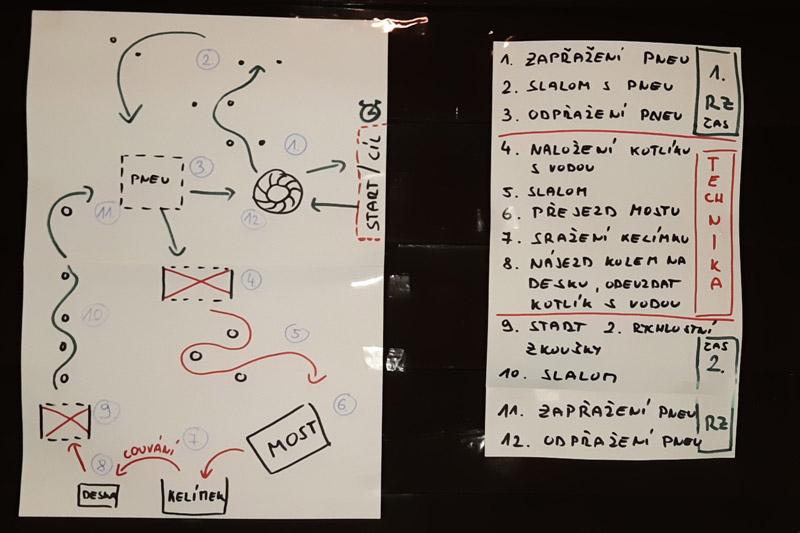 2.
1.
START / CÍL
PNEU
3.
11
12
4
10
5
6
MOST
9
7
COUVÁNÍ
8
DESKA
KELÍMEK
1. ZAPŘAŽENÍ PNEU
2. SLALOM S PNEU
3. ODPŘAŽENÍ PNEU
1.
RZ
ČAS
4. NALOŽENÍ KOTLÍKU
S VODOU
5. SLALOM
6. PŘEJEZD MOSTU
7. SRAŽENÍ KELÍMKU
8. NÁJEZD KOLEM NA
DESKU, ODEVZDAT
KOTLÍK S VODOU
TECHNIKA
9. START 2. RYCHLOSTNÍ
ZKOUŠKY
10. SLALOM
11. ZAPŘAŽENÍ PNEU
12. ODPŘAŽENÍ PNEU
ČAS
2.
RZ